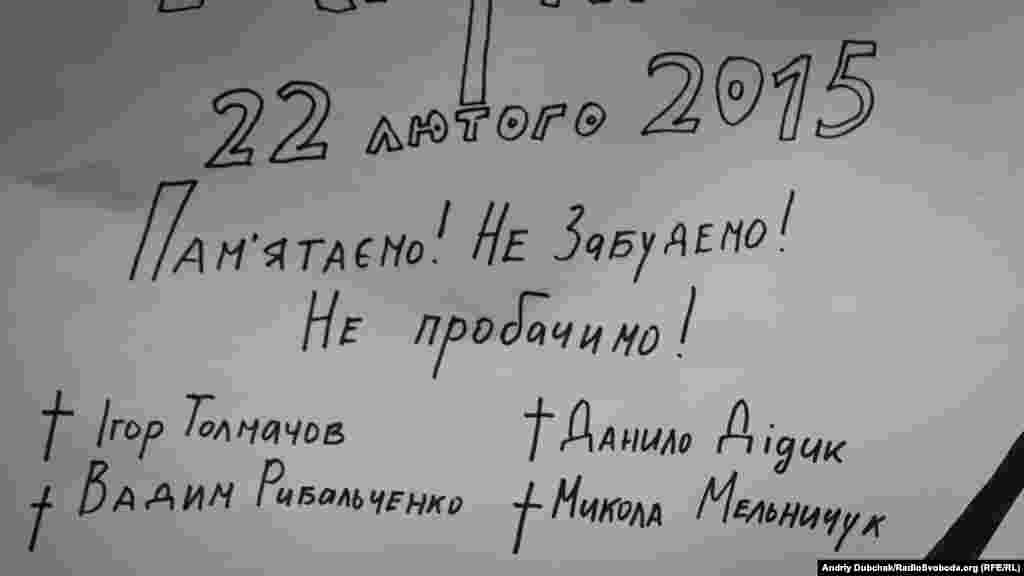 22 лютого 2015
Пам'ятаємо! Не Забудемо!
Не пробачимо!
† Ігор Толмачов
† Данило Дідик
† Вадим Рибальченко
† Микола Мельничук
Andriy Dubchak/RadioSvoboda.org (RFE/RL)